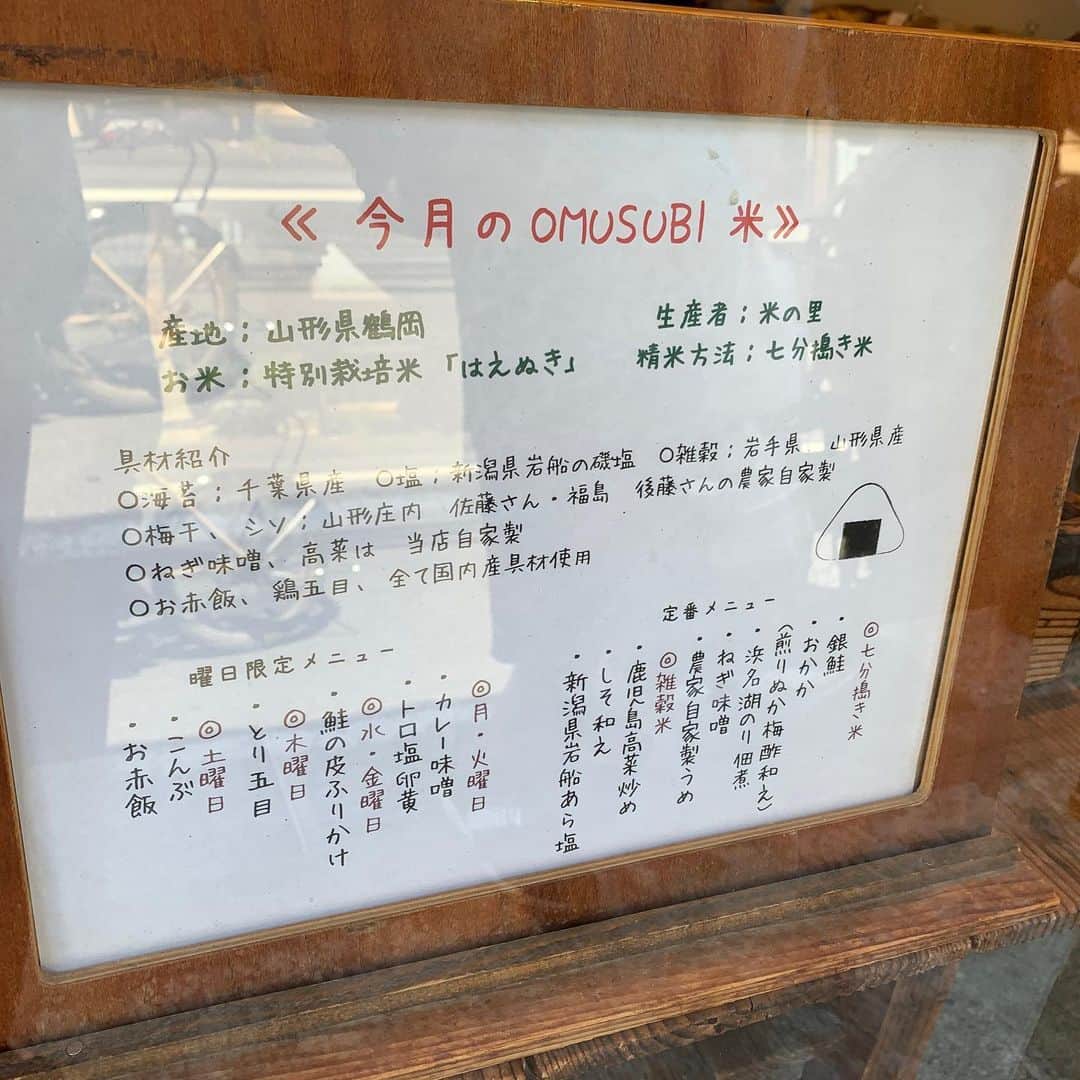 ≪ 今月のOMUSUBI 米≫
産地；山形県鶴岡
お米；特別栽培米「はえぬき」
生産者；米の里
精米方法；七分搗き米
具材紹介
〇海苔；千葉県産　〇塩；新潟県岩船の磯塩　〇雑穀；岩手県、山形県産
〇梅干、シソ；山形庄内　佐藤さん・福島　後藤さんの農家自家製
〇ねぎ味噌、高菜は　当店自家製
〇お赤飯、鶏五目、全て国内産具材使用
定番メニュー
◎七分搗き米
・銀鮭
・おかか
（煎りぬか梅酢和え）
・浜名湖のり佃煮
・ねぎ味噌
・農家自家製うめ
◎雑穀米
・鹿児島高菜炒め
・しそ和え
・新潟県岩船あら塩
曜日限定メニュー
◎月・火曜日
・カレー味噌
・トロ塩卵黄
◎水・金曜日
・鮭の皮ふりかけ
◎木曜日
・とり五目
◎土曜日
・こんぶ
・お赤飯